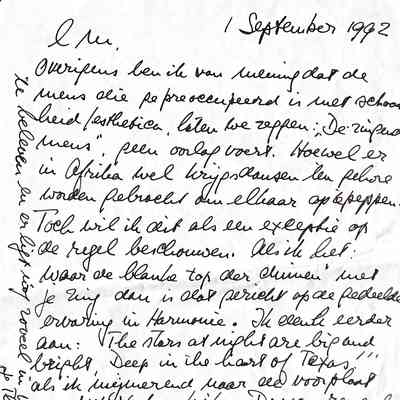 1 September 1992
L M.
Overigens ben ik van mening dat de
mens die gepreoccupeerd is met schoon
heid/esthetica, laten we zeggen: "De zingende
mens", geen oorlog voert. Hoewel er
in Afrika wel krijgsdansen ten gehore
worden gebracht om elkaar op te peppen.
Toch wil ik dit als een exceptie op
de regel beschouwen. Als ik het:
"waar de blanke top der duinen" met
je zing dan is dat gericht op de gedeelde
ervaring in Harmonie. Ik denk eerder
aan: "The stars at night are big and
bright, Deep in the heart of Texas"!!
als ik mijmerend naar de voorplaat
te beleven en er ligt nog zoveel in